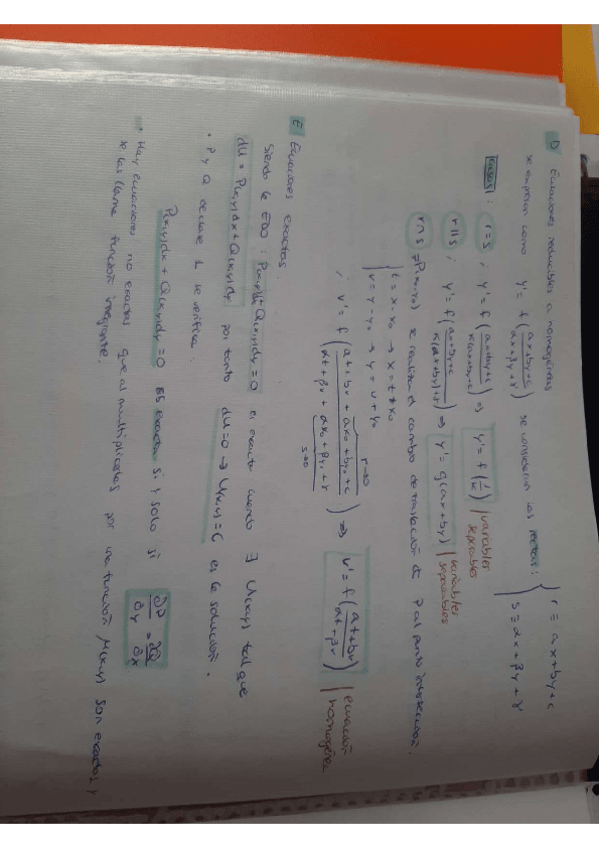 D Ecuaciones reducibles a homogéneas
se expresan como y' = f(ax+by+c / αx+βy+γ) se consideran las rectas: { r ≡ ax+by+c
s ≡ αx+βy+γ
casos: r=s ; y' = f(ax+by+c / K(ax+by+c)) ⇒ y' = f(1/k) | variables separables
r∥s ; y' = f(ax+by+c / K(ax+by)+γ) ⇒ y' = g(ax+by) | variables separables
r∩s ≠ P(x₀,y₀) se realiza el cambio de traslación de P al punto intersección.
{ t = x-x₀ → x = t+x₀
v = y-y₀ → y = v+y₀
; v' = f(at+bv+ax₀+by₀+c / αt+βv+αx₀+βy₀+γ) ⇒ v' = f(at+bv / αt+βv) | ecuación homogénea
r→0
s→0
E Ecuaciones exactas
Siendo la EDO: P(x,y)dx+Q(x,y)dy=0 es exacta cuando ∃ U(x,y) tal que
dU = P(x,y)dx+Q(x,y)dy por tanto dU=0 → U(x,y)=C es la solución.
• P y Q de clase 1 se verifica:
P(x,y)dx + Q(x,y)dy = 0 es exacta si y solo si ∂P/∂y = ∂Q/∂x
* Hay ecuaciones no exactas que al multiplicarlas por una función μ(x,y) son exactas y
se las llama función integrante.